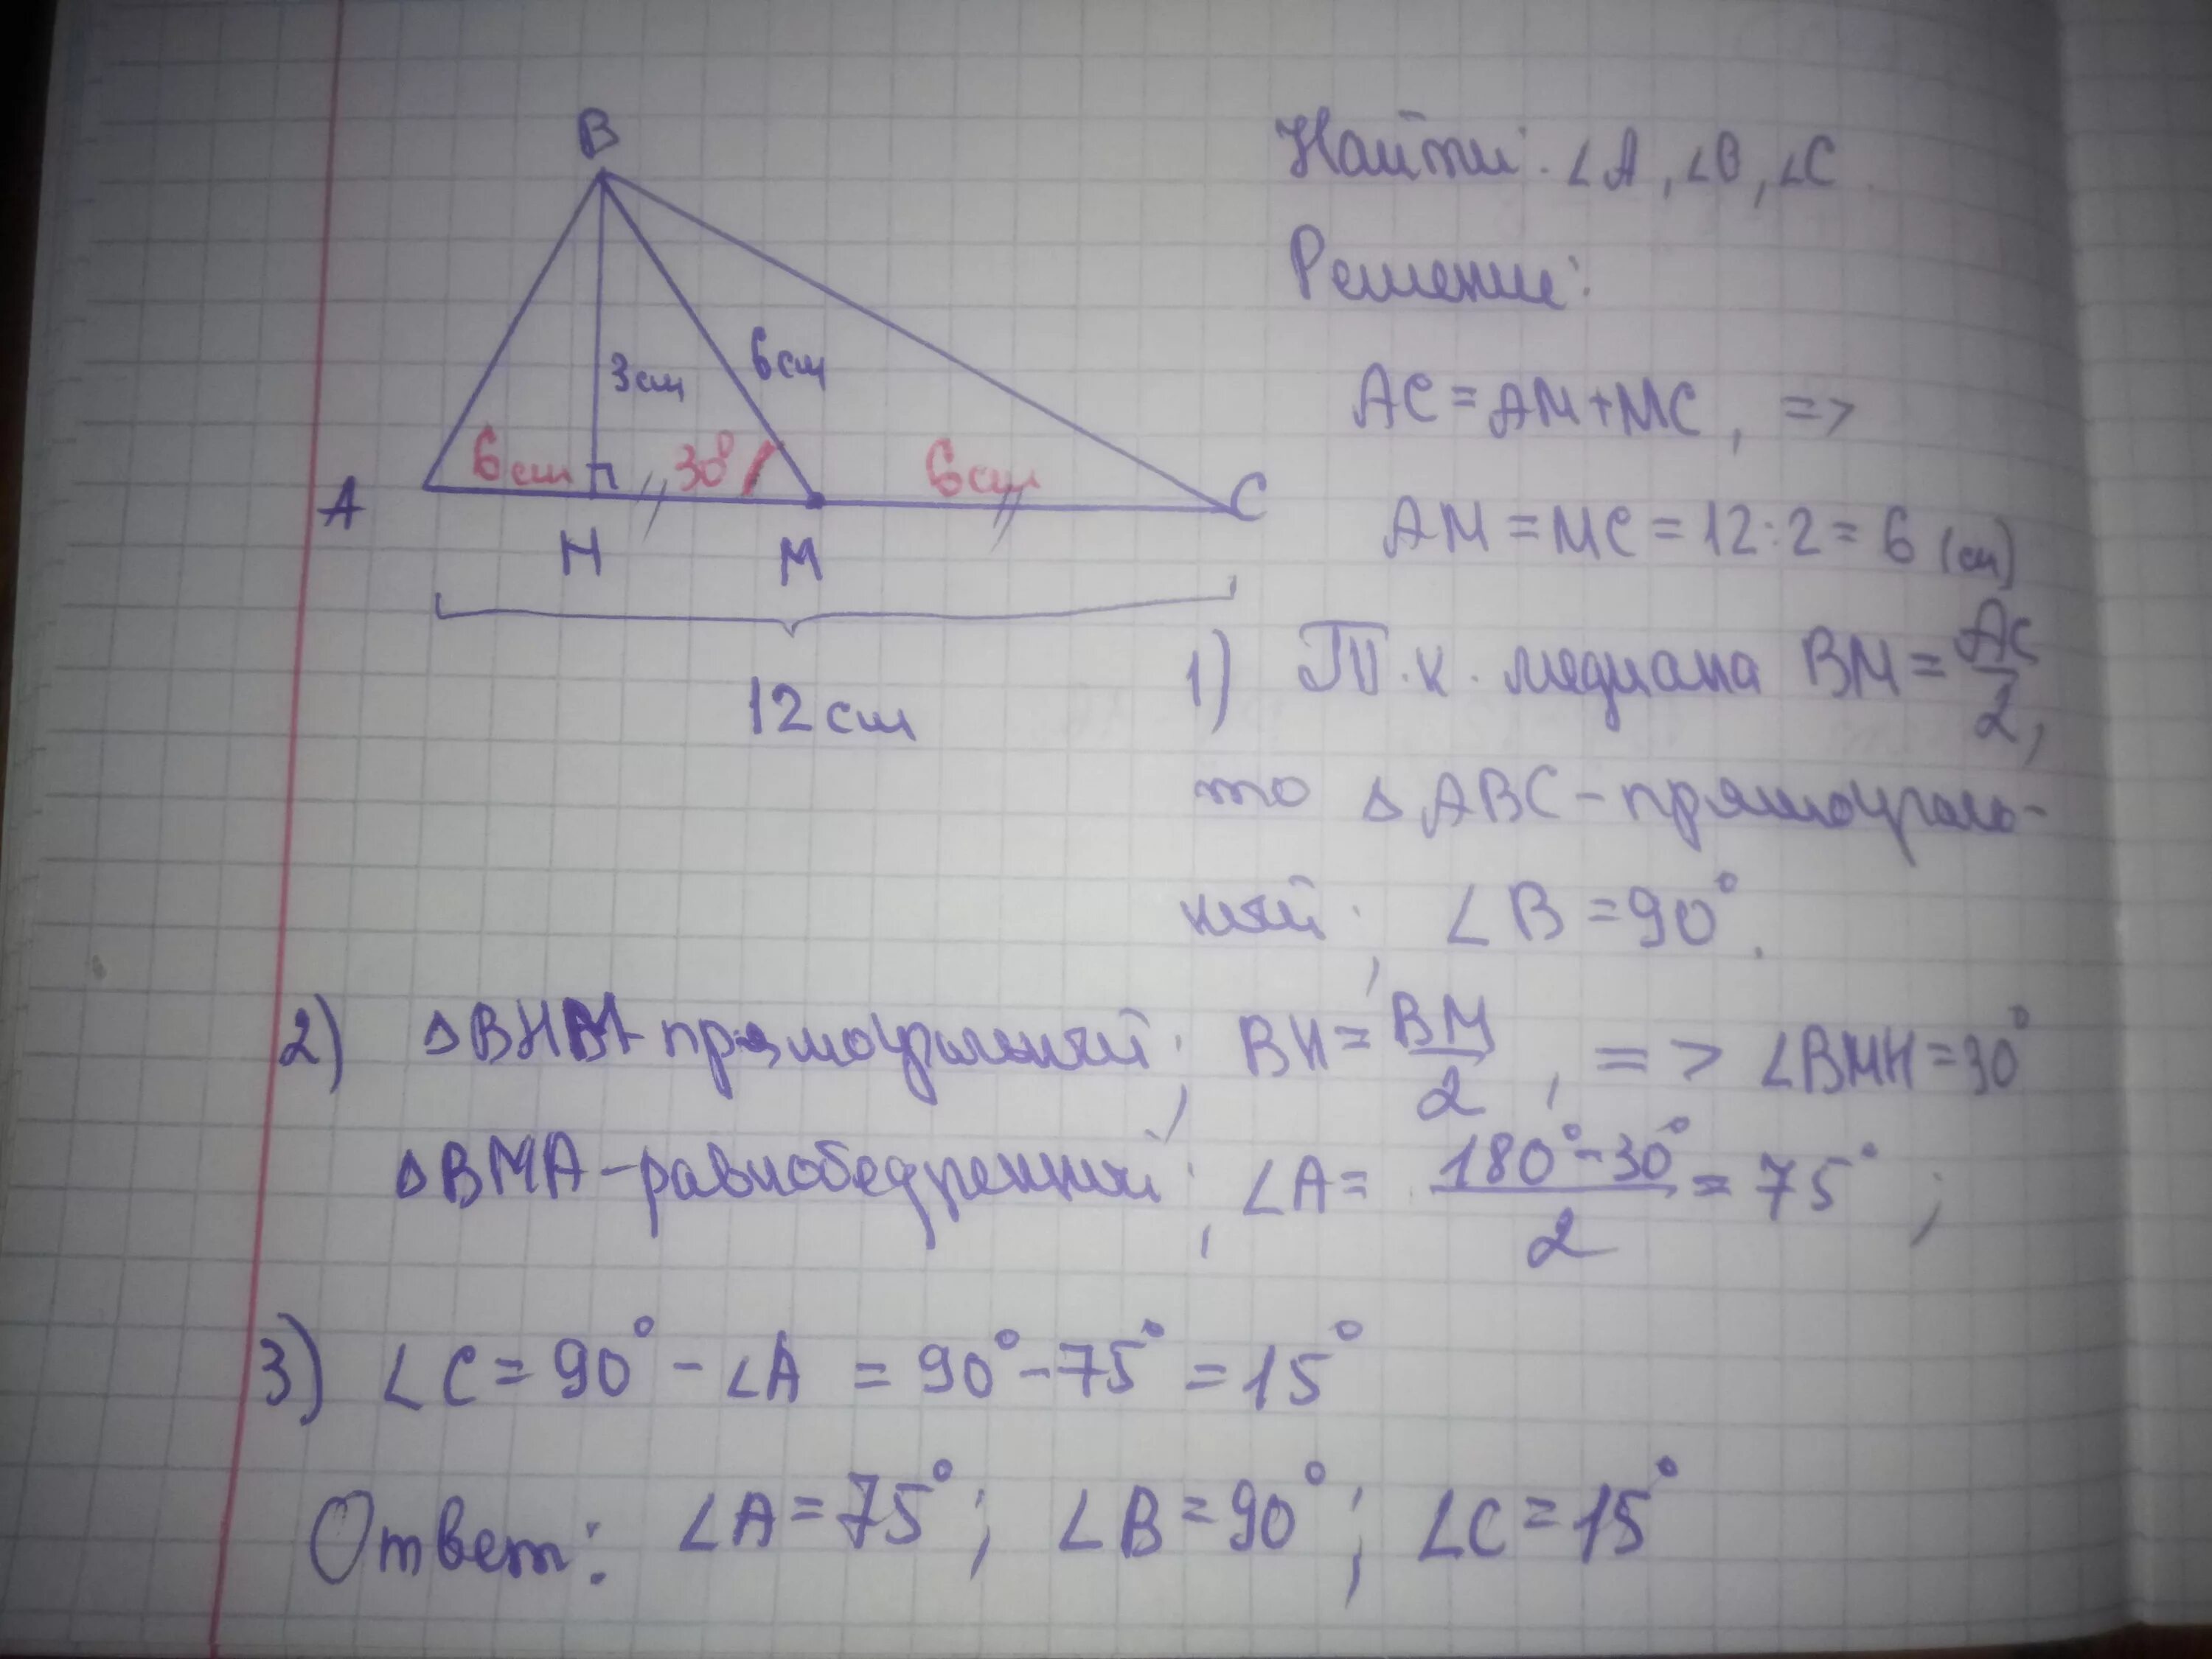 B
3см
6см
6см
30°
6см
A
H
M
C
12см
Найти: ∠A, ∠B, ∠C
Решение:
AC = AM + MC, =>
AM = MC = 12 : 2 = 6 (см)
1) Т.к. медиана BM = AC/2,
то △ABC - прямоуголь-
ный; ∠B = 90°.
2) △BHM - прямоугольный; BH = BM/2, => ∠BMH = 30°
△BMA - равнобедренный; ∠A = (180° - 30°)/2 = 75°;
3) ∠C = 90° - ∠A = 90° - 75° = 15°
Ответ: ∠A = 75°; ∠B = 90°; ∠C = 15°